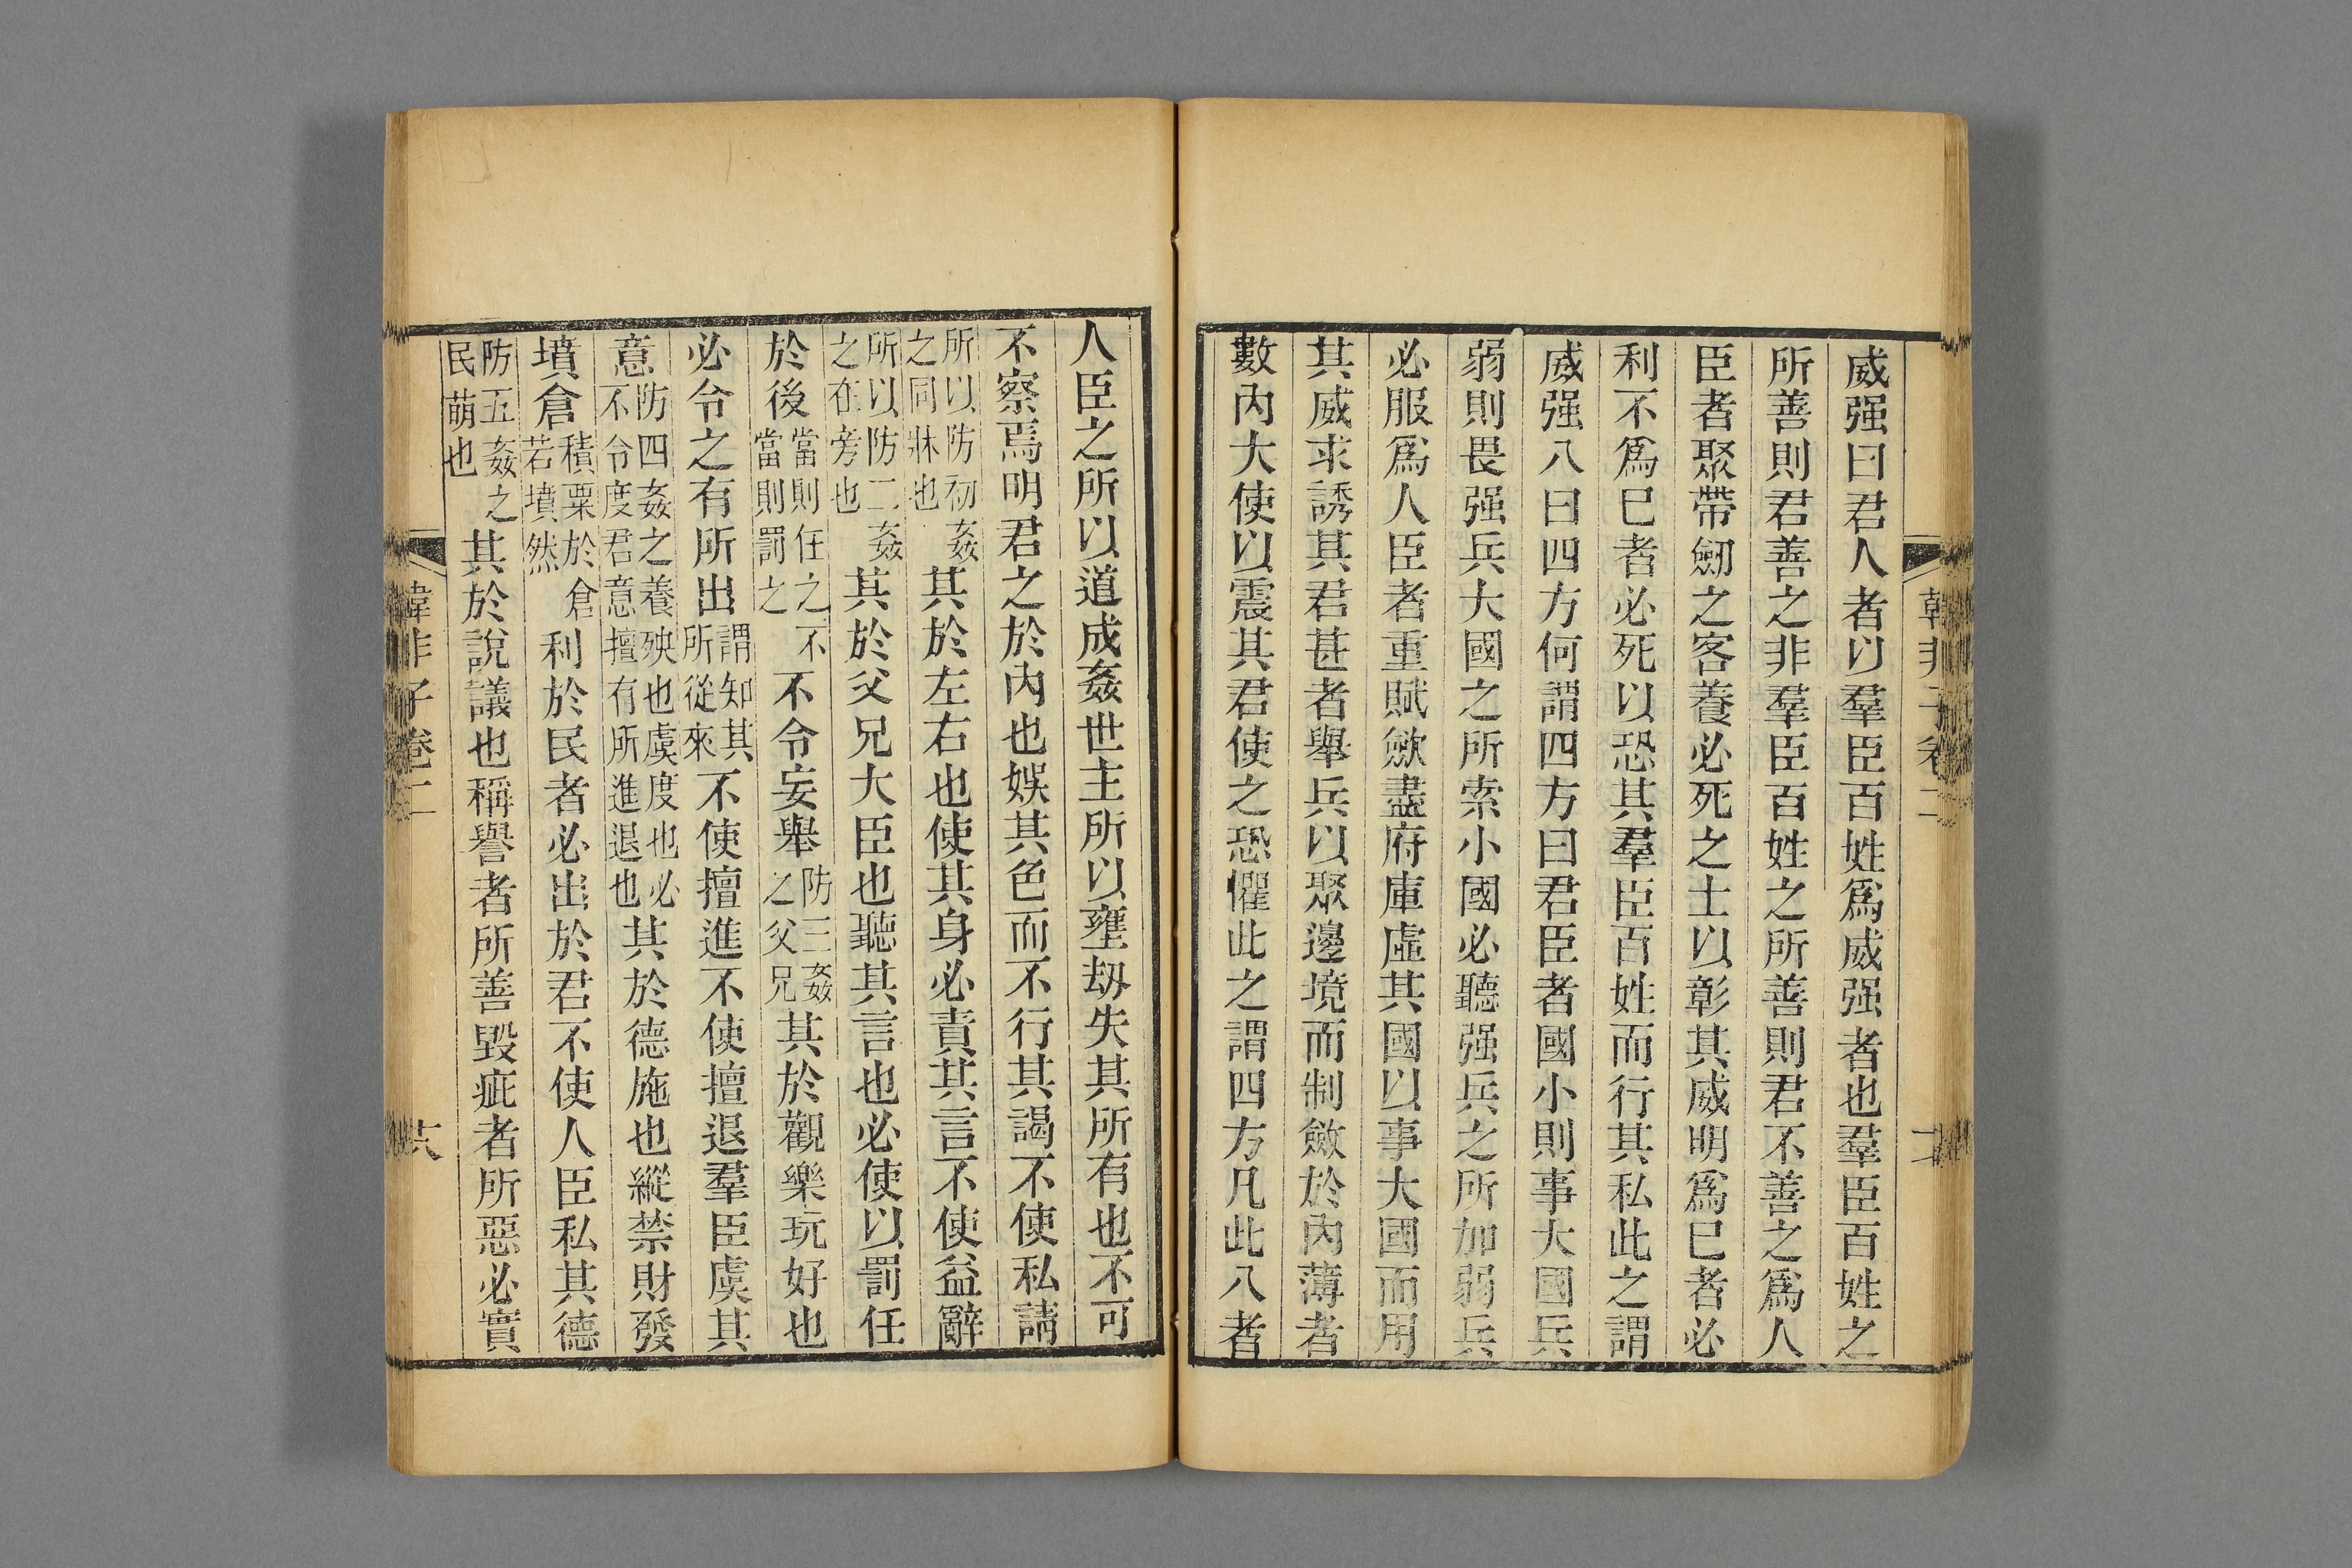 威强曰君人者以羣臣百姓爲威强者也羣臣百姓之
所善則君善之非羣臣百姓之所善則君不善之爲人
臣者聚帶劒之客養必死之士以彰其威明爲已者必
利不爲已者必死以恐其羣臣百姓而行其私此之謂
威强八曰四方何謂四方曰君臣者國小則事大國兵
弱則畏强兵大國之所索小國必聽强兵之所加弱兵
必服爲人臣者重賦斂盡府庫虛其國以事大國而用
其威求誘其君甚者舉兵以聚邊境而制斂於內薄者
數內大使以震其君使之恐懼此之謂四方凡此八者
韓非子卷二
人臣之所以道成姦世主所以壅刼失其所有也不可
不察焉明君之於內也娛其色而不行其謁不使私請
所以防初姦之同牀也其於左右也使其身必責其言不使益辭
所以防二姦之在旁也其於父兄大臣也聽其言也必使以罰任
於後當則任之不當則罰之不令妄舉防三姦之父兄其於觀樂玩好也
必令之有所出謂知其所從來不使擅進不使擅退羣臣虞其
意防四姦之養殃也虞度也必不令度君意擅有所進退也其於德施也縱禁財發
墳倉積粟於倉若墳然利於民者必出於君不使人臣私其德
防五姦之民萌也其於說議也稱譽者所善毀疵者所惡必實
韓非子卷二